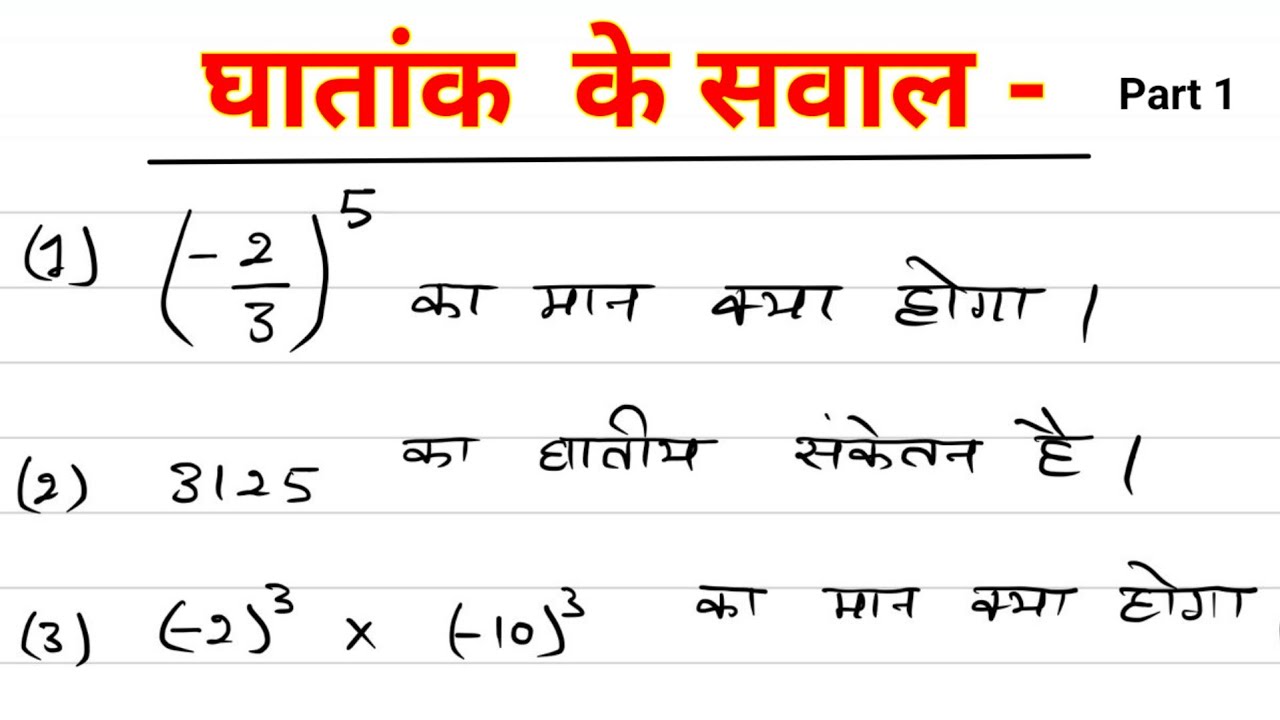 घातांक के सवाल - Part 1
(1) (-2/3)^5 का मान क्या होगा।
(2) 3125 का घातीय संकेतन है।
(3) (-2)^3 × (-10)^3 का मान क्या होगा।